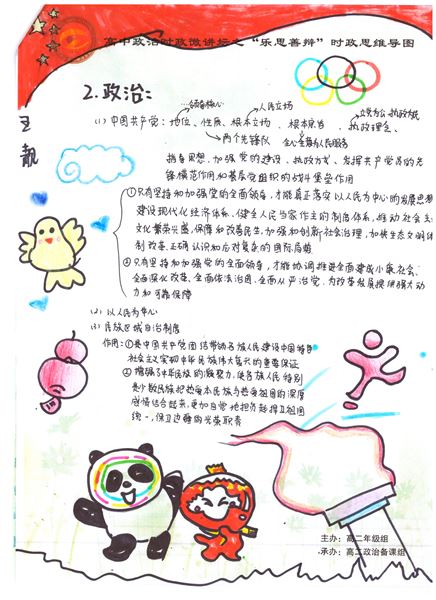 高中政治时政微讲坛之"乐思善辩"时政思维导图
2.政治:
王靓
领导核心
人民立场
立党为公、执政为民
(1)中国共产党:地位、性质、根本立场、根本宗旨、执政理念、
两个先锋队
全心全意为人民服务
指导思想、加强党的建设、执政方式、发挥共产党员的先
锋模范作用和基层党组织的战斗堡垒作用
①只有坚持和加强党的全面领导,才能真正落实以人民为中心的发展思想
建设现代化经济体系、健全人民当家作主的制度体系,推动社会主
文化繁荣兴盛、保障和改善民生、加强和创新社会治理,加快生态文明体
制改革、正确认识和应对复杂的国际局势
②只有坚持和加强党的全面领导,才能协调推进全面建成小康社会、
全面深化改革、全面依法治国、全面从严治党,为改革发展提供强大动
力和可靠保障
(2)以人民为中心
(3)民族区域自治制度
作用:①是中国共产党团结带领各族人民建设中国特色
社会主义实现中华民族伟大复兴的重要保证
②增强了中华民族的凝聚力,使各族人民特别
是少数民族把热爱本民族与热爱祖国的深厚
感情结合起来,更加自觉地担负起捍卫祖国
统一,保卫边疆的光荣职责
主办:高二年级组
承办:高二政治备课组